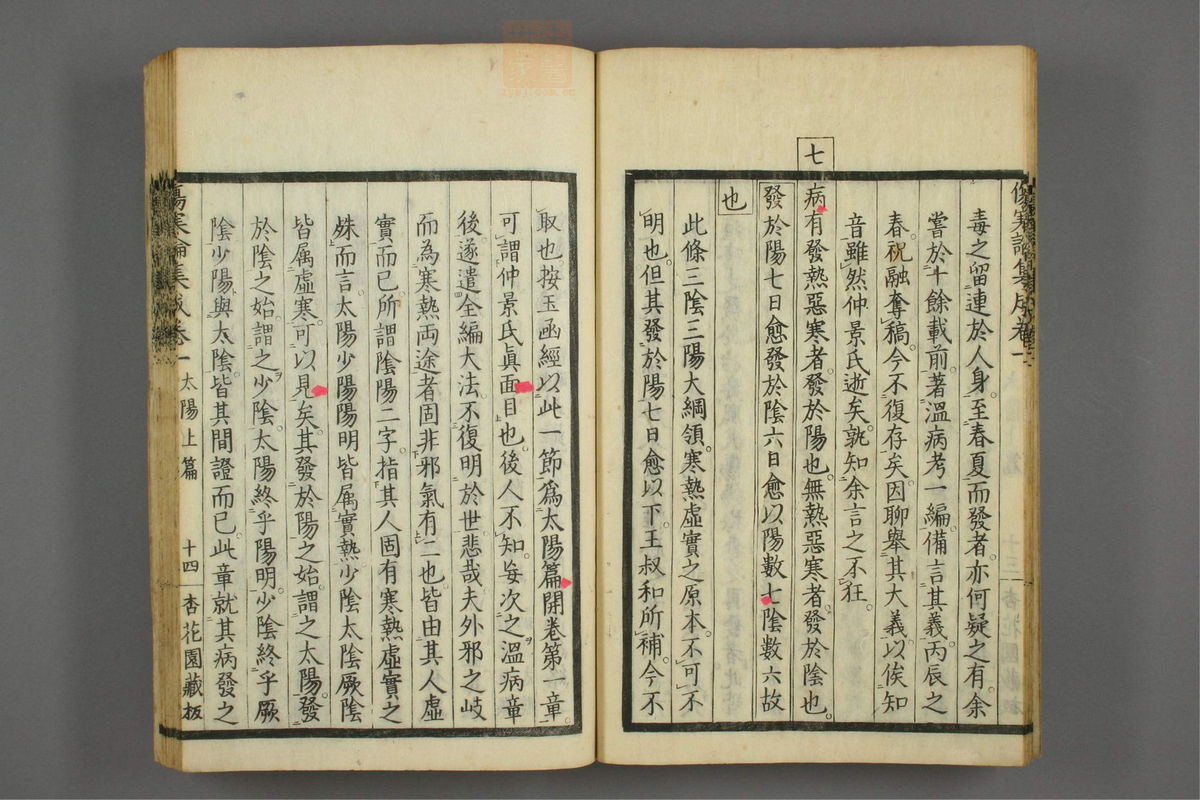 毒之留連於人身至春夏而發者亦何疑之有余
嘗於十餘載前著溫病考一編備言其義丙辰之
春祝融奪稿今不復存矣因聊舉其大義以俟知
音雖然仲景氏逝矣孰知余言之不狂
七
病有發熱惡寒者發於陽也無熱惡寒者發於陰也
發於陽七日愈發於陰六日愈以陽數七陰數六故
也
此條三陰三陽大綱領寒熱虛實之原本不可不
明也但其發於陽七日愈以下王叔和所補今不
十三
取也按玉函經以此一節為太陽篇開卷第一章
可謂仲景氏眞面目也後人不知妄次之溫病章
後遂遣全編大法不復明於世悲哉夫外邪之岐
而為寒熱兩途者固非邪氣有二也皆由其人虛
實而已所謂陰陽二字指其人固有寒熱虛實之
殊而言太陽少陽陽明皆属實熱少陰太陰厥陰
皆属虛寒可以見矣其發於陽之始謂之太陽發
於陰之始謂之少陰太陽終乎陽明少陰終乎厥
陰少陽與太陰皆其間證而已此章就其病發之
傷寒論集成卷一 太陽上篇 十四 杏花園藏板